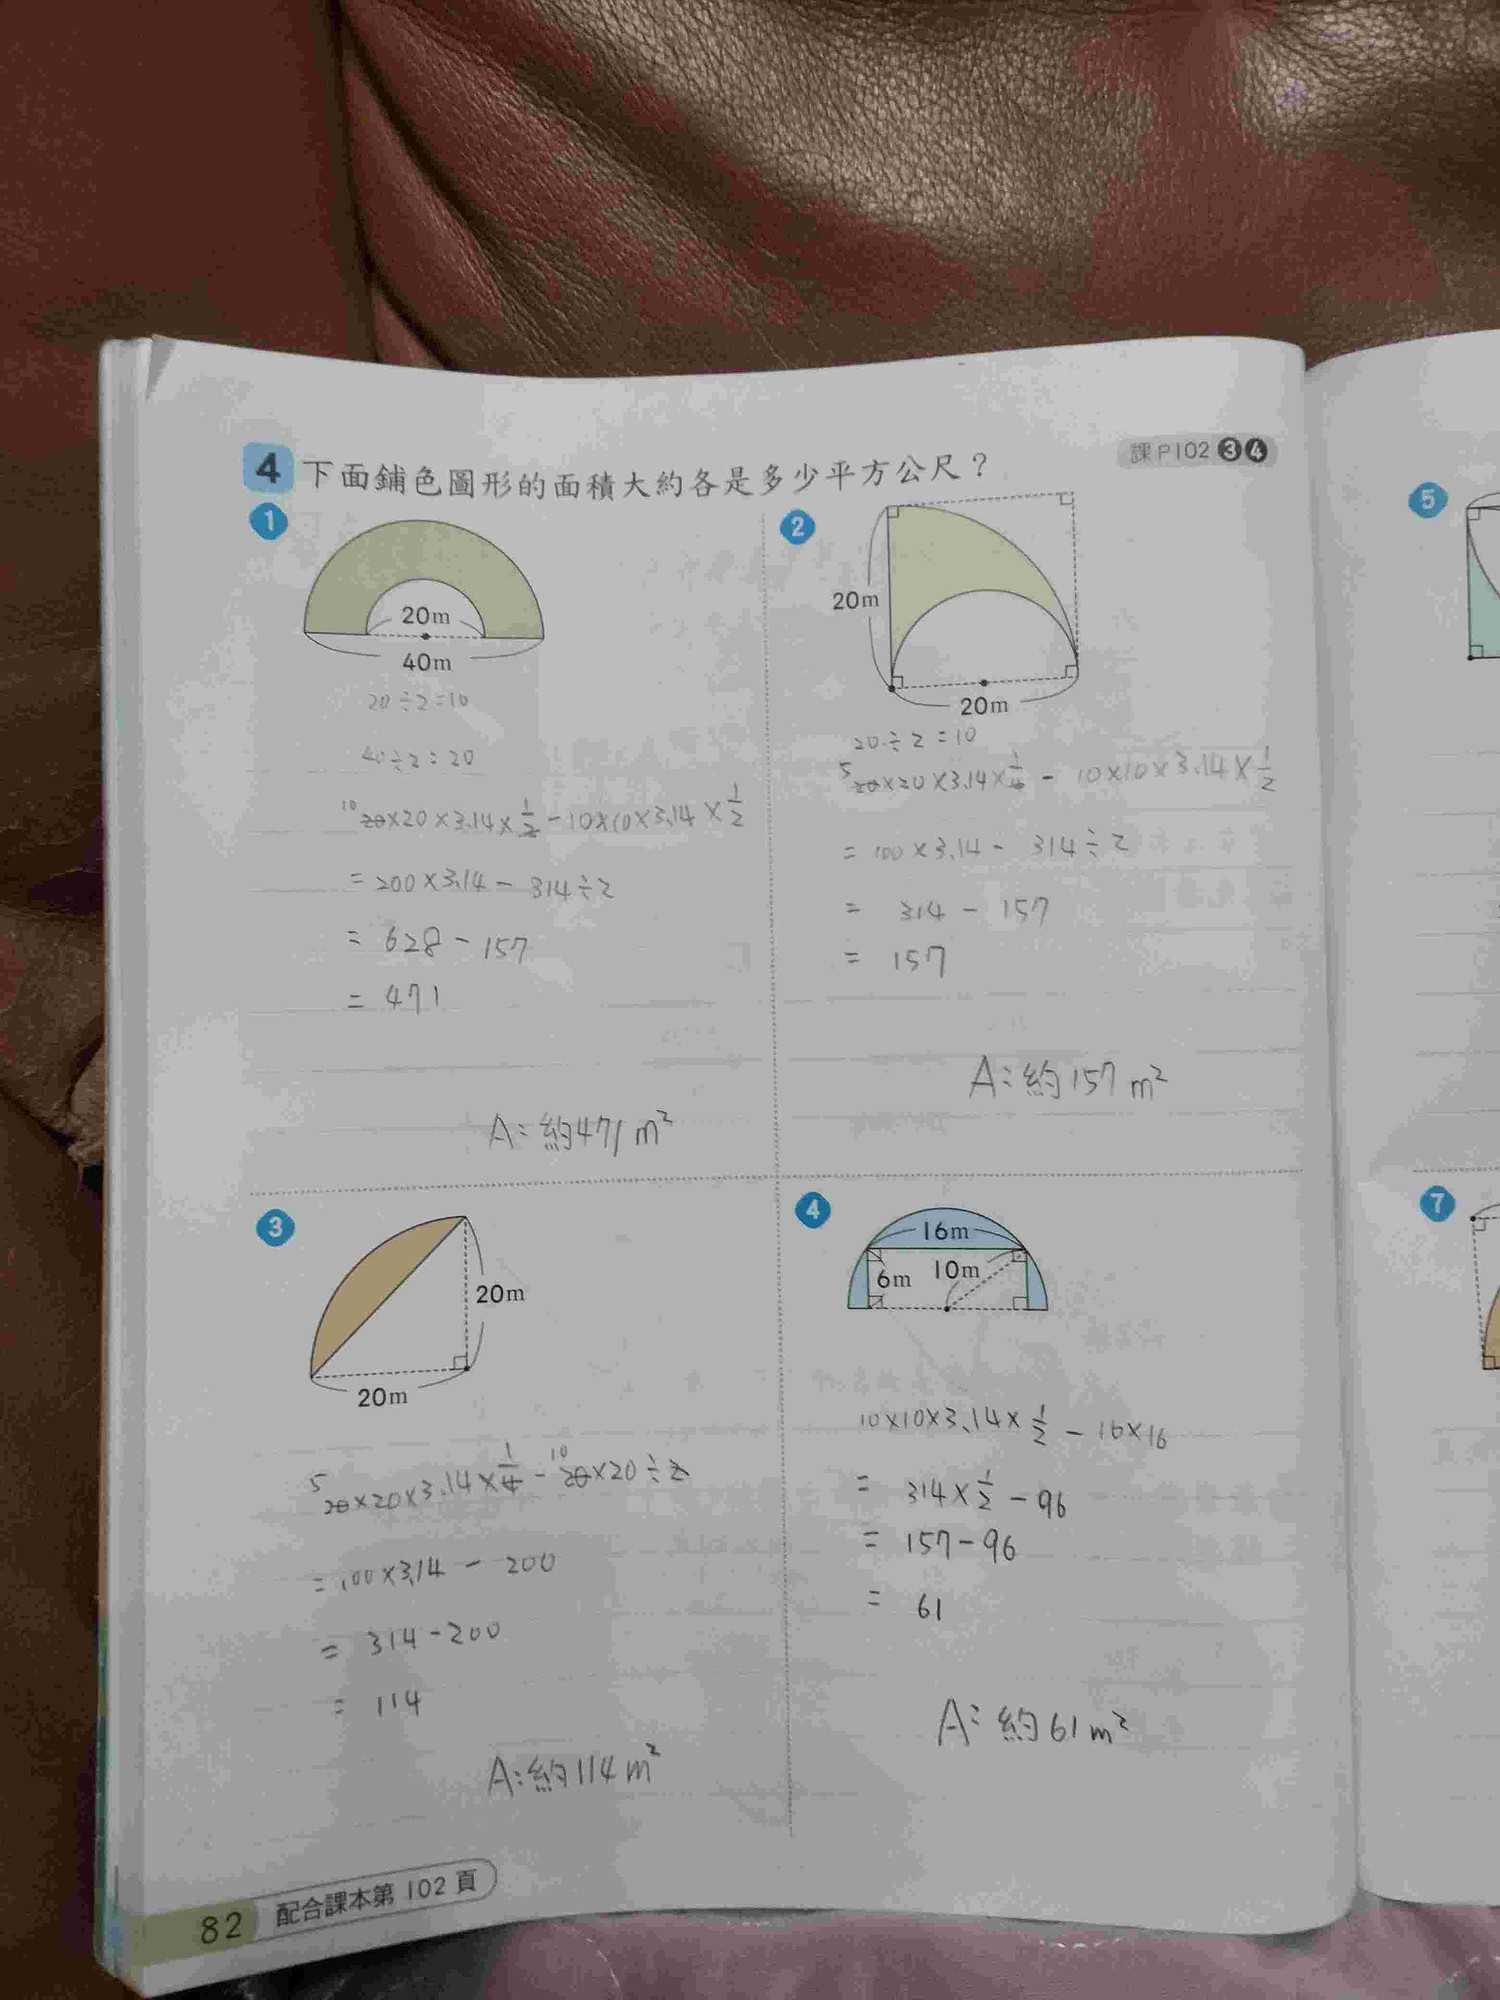 4 下面鋪色圖形的面積大約各是多少平方公尺？
課P102 3 4
1
20m
40m
20÷2=10
40÷2=20
10
20×20×3.14×1/2-10×10×3.14×1/2
=200×3.14-314÷2
=628-157
=471
A:約471m²
2
20m
20m
20÷2=10
5
20×20×3.14×1/4-10×10×3.14×1/2
=100×3.14-314÷2
=314-157
=157
A:約157m²
3
20m
20m
5 10
20×20×3.14×1/4-20×20÷2
=100×3.14-200
=314-200
=114
A:約114m²
4
16m
6m 10m
10×10×3.14×1/2-16×16
=314×1/2-96
=157-96
=61
A:約61m²
82 配合課本第102頁
5
7